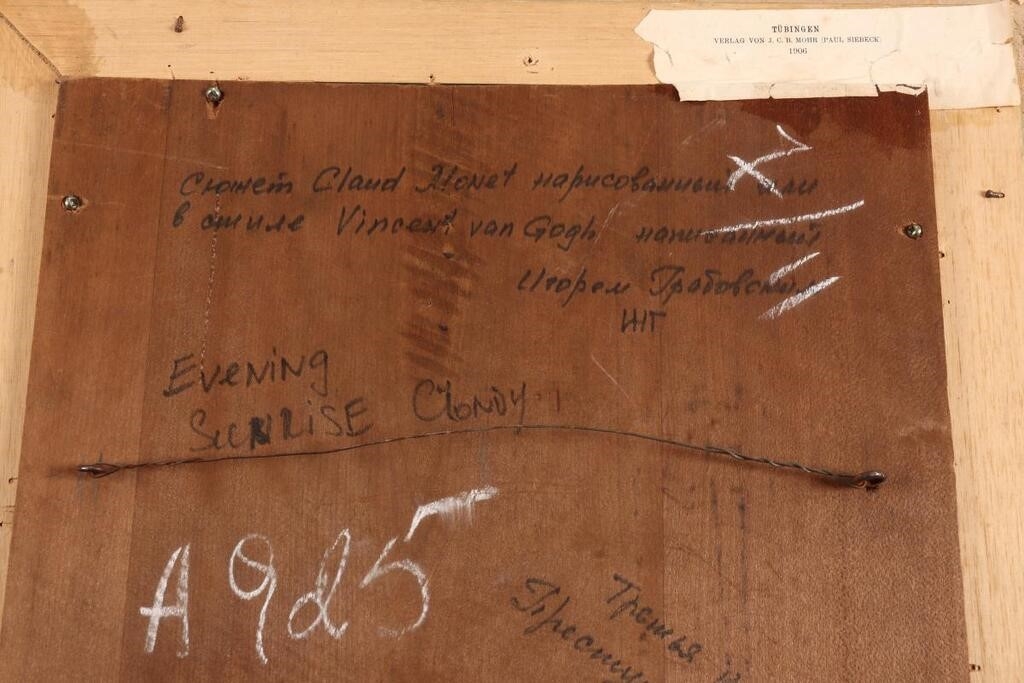 TÜBINGEN
VERLAG VON J. C. B. MOHR (PAUL SIEBECK)
1906
Сюжет Claud Monet нарисованный или
в стиле Vincent van Gogh написанный
Игорем Грабовским
ИГ
EVENING
SUNRISE CLOUDY
A925
Третья